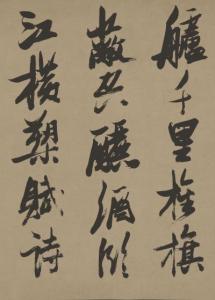 艫千里旌旗
蔽空釃酒臨
江橫槊賦詩